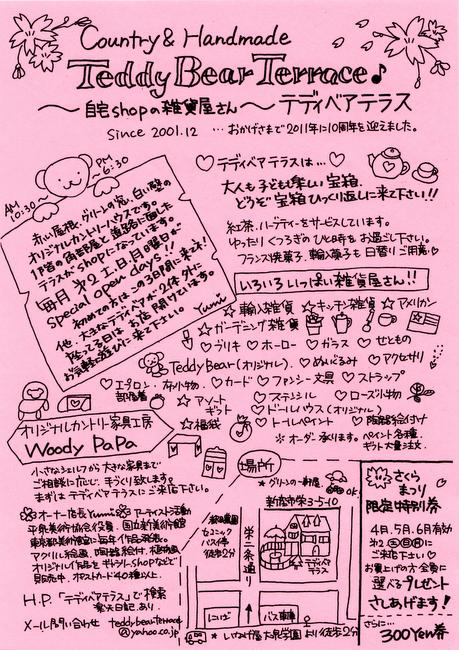 Country & Handmade
Teddy Bear Terrace♪
～自宅shopの雑貨屋さん～テディベアテラス
Since 2001.12 …おかげさまで2011年に10周年を迎えました。
AM 10:30～
PM ～6:30
赤い屋根、グリーンの窓、白い壁の
オリジナルカントリーハウスです。
1階の角部屋と道路に面した
テラスがshopになっています。
毎月 第2土、日、月曜日が
special open days!!
初めての方はこの3日間に来訪!
他、大きなテディベアが2体外に
座ってる日はお店開けています。
お気軽に遊びに来て下さい。
Yumi
♡テディベアテラスは…♡
大人も子ども楽しい宝箱。
どうぞ宝箱ひっくり返しに来て下さい!!
紅茶、ハーブティーをサービスしています。
ゆったりくつろぎのひと時をお過し下さい。
フランス焼菓子、輪入菓子も日替りご用意♡
いろいろいっぱい雑貨屋さん!!
☆輸入雑貨 ☆キッチン雑貨 ☆アメリカン
☆ガーデニング雑貨
♡ブリキ ♡ホーロー ♡ガラス ♡せともの
♡Teddy Bear(オリジナル) ♡ぬいぐるみ ♡アクセサリー
♡エプロン・布小物 ♡カード ♡ファンシー文具 ♡ストラップ
部屋着
☆アソートギフト ♡ステンシル ♡ローズ小物
♡ドールハウス(オリジナル)
☆福袋 ♡トールペイント ♡陶磁器絵付け
※オーダー承ります。ペイント各種。
ギフト大量注文。
オリジナルカントリー家具工房
Woody PaPa
小さなシェルフから大きな家具まで
ご相談に応じ、手づくり致します。
まずはテディベアテラスにご来店下さい。
オーナー店長Yumi アーティスト活動
東京都美術館に毎年作品発表。
オリジナル作品をギャラリー、shopなどで
販売中。ポストカード40種以上。
H.P.「テディベアテラス」で検索
楽天日記あり。
メール問い合わせ teddybearterrace
@yahoo.co.jp
場所
※グリーンの一軒屋。
ok!
新座市栄3-5-10
セコニック
バス停
徒歩2分
栄三条通り
テディベア
テラス
バス車庫
※いなげ屋大泉学園より徒歩2分
さくら
まつり
限定特別券
4月、5月、6月有効
第2土日月に
ご来店下さい♡
お買上げの方全員に
選べるプレゼント
さしあげます!
さらに…
300Yen券